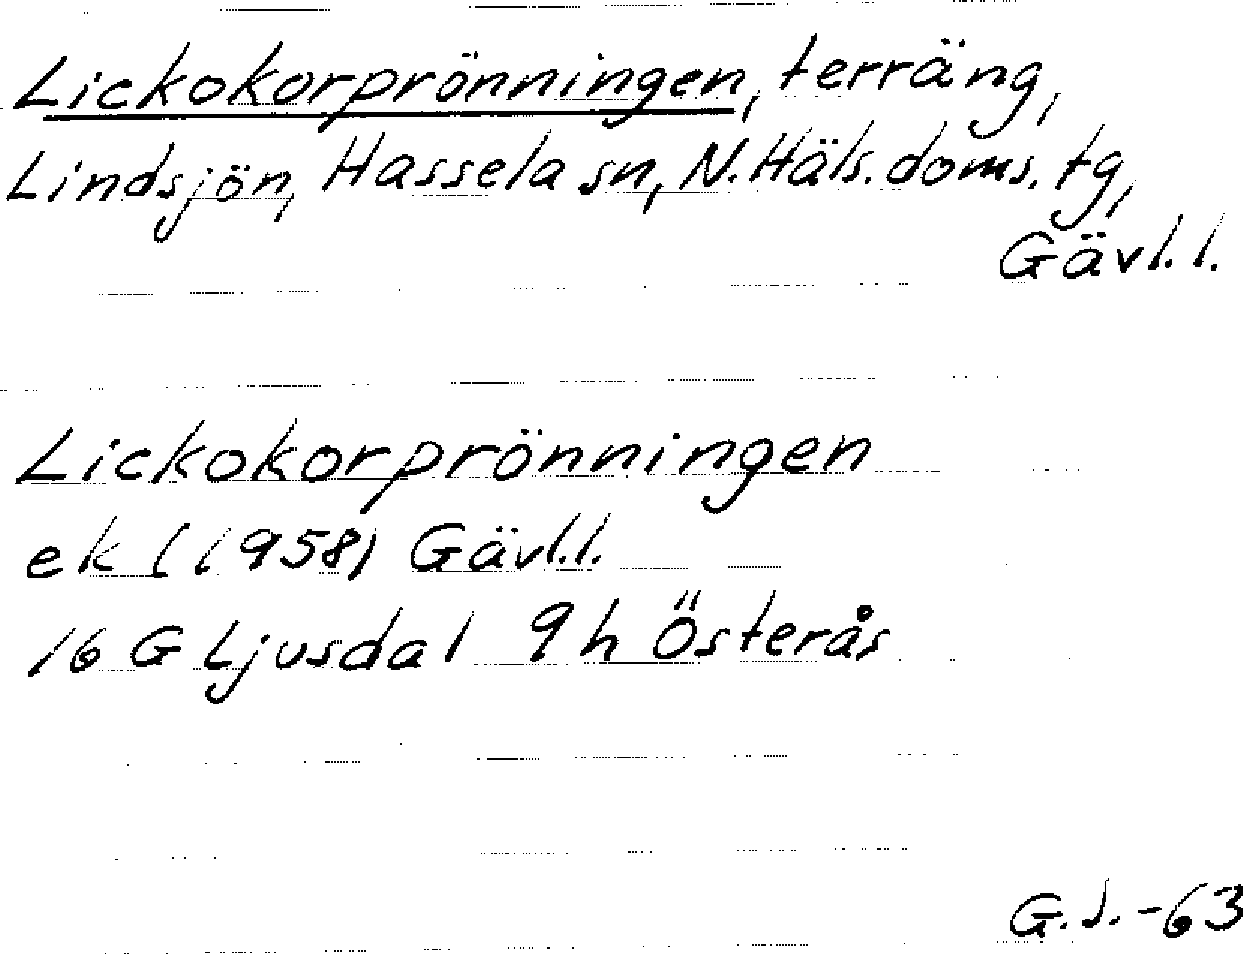 Lickokorprönningen, terräng,
Lindsjön, Hassela sn, N. Häls. doms. tg,
Gävl. l.
Lickokorprönningen
ek (1958) Gävl. l.
16 G Ljusdal 9 h Österås
G. J. -63